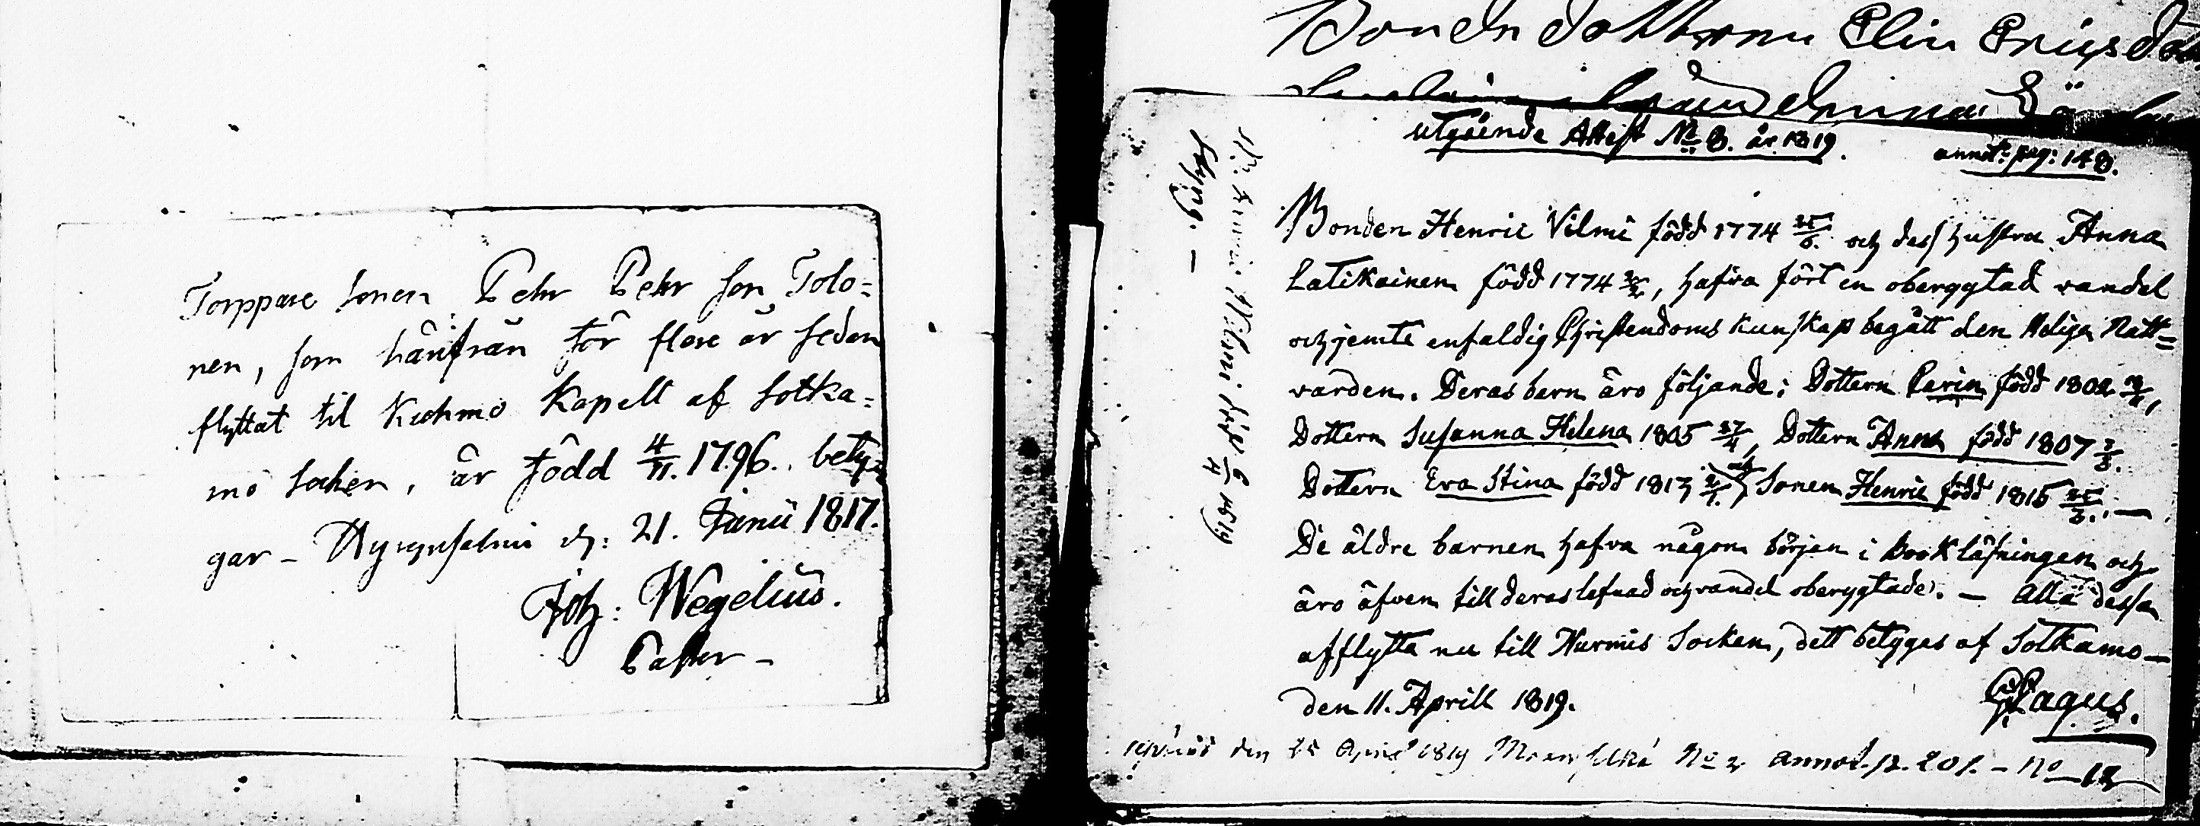 Torppare sonen Pehr Pehr son Tolo=
nen, som härifrån för flere år sedan
flyttat til Kuhmo Kapell af Sotka=
mo socken, är född 4/11. 1796., bety-
gar - Hyrynsalmi d: 21. Junii 1817.
Joh: Wegelius.
Pastor -
Bonde dottren Elin Ericsdot
utgående Attest No 8. år 1819.
annot: pag: 148.
Bonden Henric Vilmi född 1774 25/6. och dess hustru Anna
Latikainen född 1774, hafva fört en oberygtad vandel
och jemte enfaldig Christendoms kunskap begått den Heliga Natt=
varden. Deras barn äro följande: Dottern Carin född 1802
Dottern Susanna Helena 1805 27/4, Dottern Anna född 1807
Dottern Eva Stina född 1813 Sonen Henric född 1816
De äldre barnen hafva någon början i Bookläsningen och
äro äfven till deras lefnad och vandel oberygtade. - Alla dessa
afflytta nu till Nurmis Socken, dett betygas af Sotkamo -
den 11. Aprill 1819.
Pagus.
den 25 April 1819 No 2 annot. p. 201. - No 12